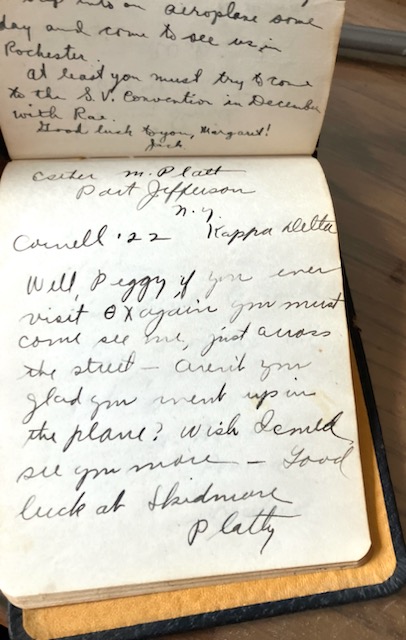 into an aeroplane some
day and come to see us in
Rochester.
At least you must try to come
to the S.V. Convention in December
with Rae.
Good luck to you, Margaret!
Jack
Esther M. Platt
Port Jefferson
N.Y.
Cornell '22 Kappa Delta
Well, Peggy if you ever
visit ΘX again you must
come see me, just across
the street - aren't you
glad you went up in
the plane? Wish I could
see you more - Good
luck at Skidmore
Platty